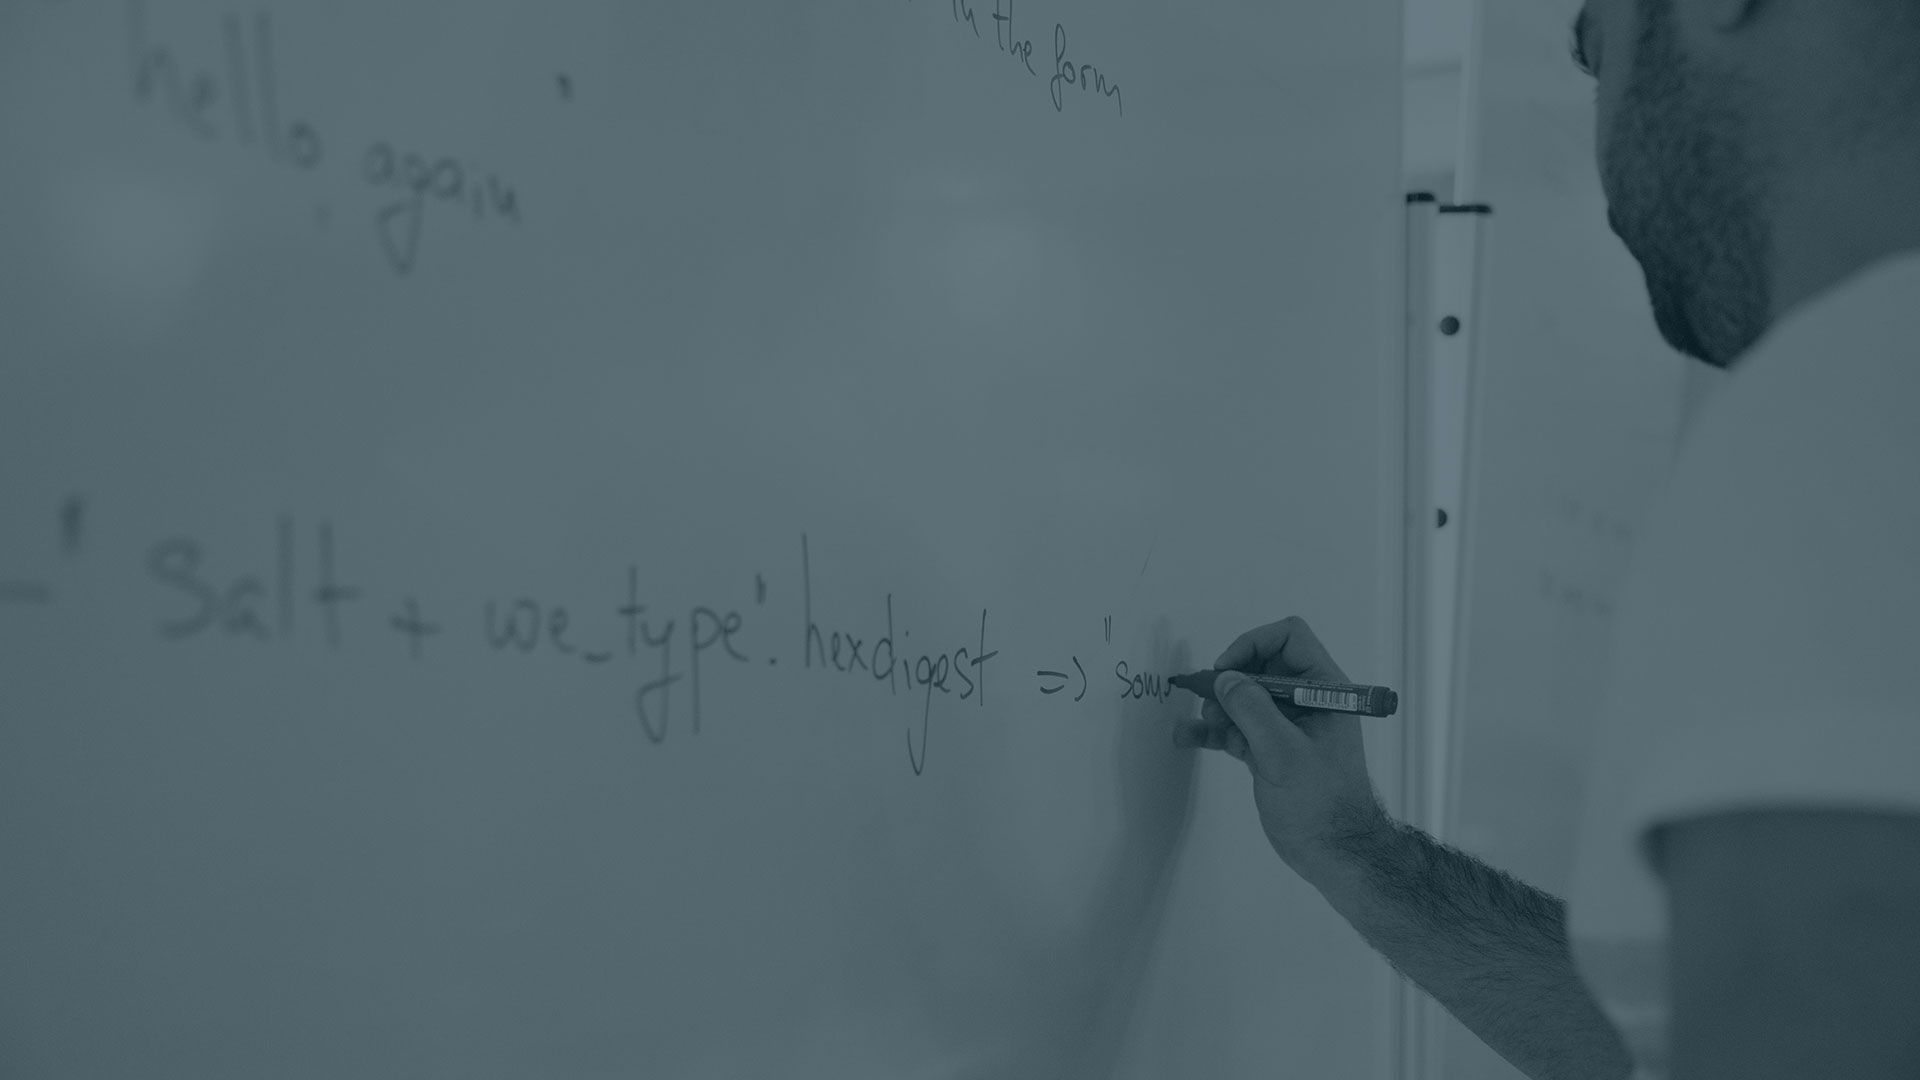 in the form
hello again '
-' Salt + we_type'. hexdigest => "som